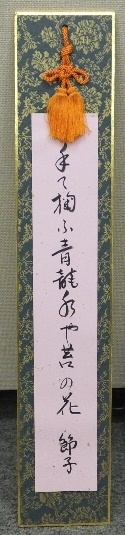 手で掬ふ青龍水や苔の花 節子